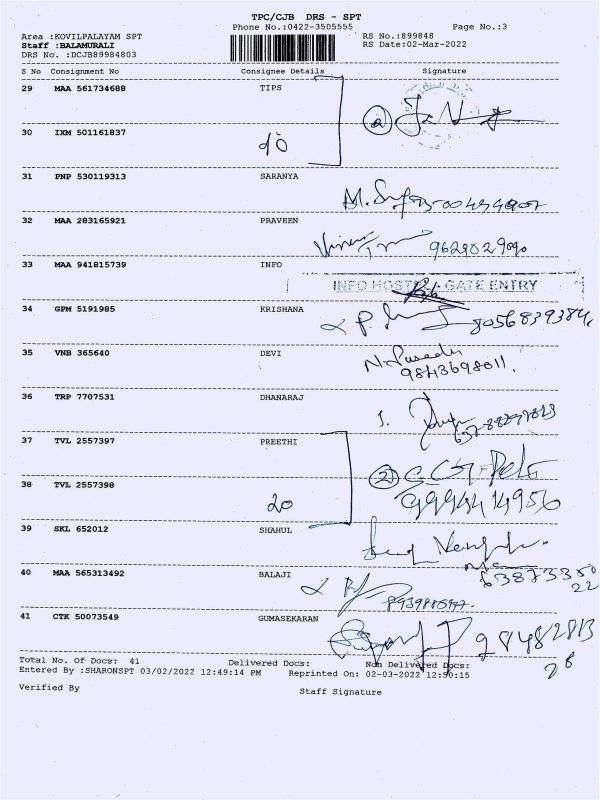 TPC/CJB DRS - SPT
Phone No.:0422-3505555 Page No.:3
Area :KOVILPALAYAM SPT RS No.:899848
Staff :BALAMURALI RS Date:02-Mar-2022
DRS No. :DCJB89984803
S No Consignment No Consignee Details Signature
29 MAA 561734688 TIPS
30 IXM 501161837
31 PNP 530119313 SARANYA
32 MAA 283165921 PRAVEEN
9629029090
33 MAA 941815739 INFO
INFO HOSTEL GATE ENTRY
34 GPM 5191985 KRISHANA
8056839384
35 VNB 365640 DEVI
9843698011.
36 TRP 7707531 DHANARAJ
37 TVL 2557397 PREETHI
38 TVL 2557398 20
39 SKL 652012 SHAHUL
40 MAA 565313492 BALAJI
41 CTK 50073549 GUMASEKARAN
Total No. Of Docs: 41 Delivered Docs: Non Delivered Docs:
Entered By :SHARONSPT 03/02/2022 12:49:14 PM Reprinted On: 02-03-2022 12:50:15
Verified By Staff Signature